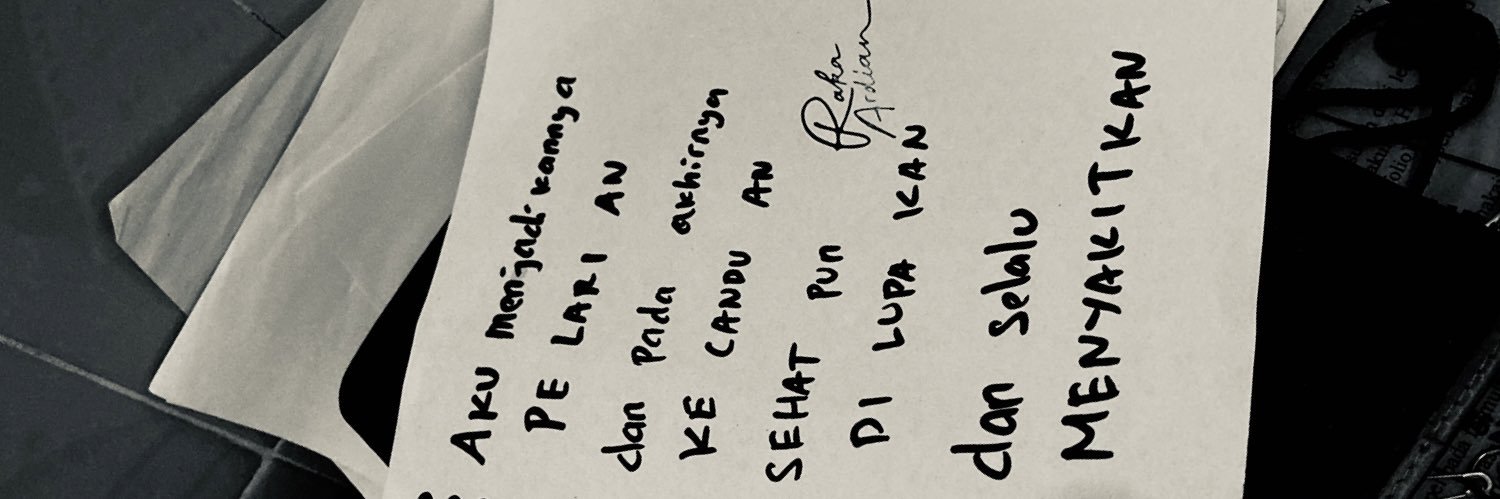 AKU menjadikannya
PE LARI AN
dan Pada akhirnya
KE CANDU AN
SEHAT PUN
DI LUPA KAN
dan Selalu
MENYAKITKAN
Raka
Ardian